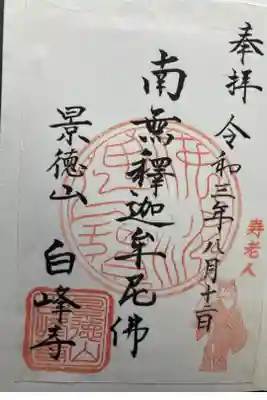 奉拝
令和三年八月十二日
壽老人
南無釋迦牟尼佛
景徳山
白峰寺